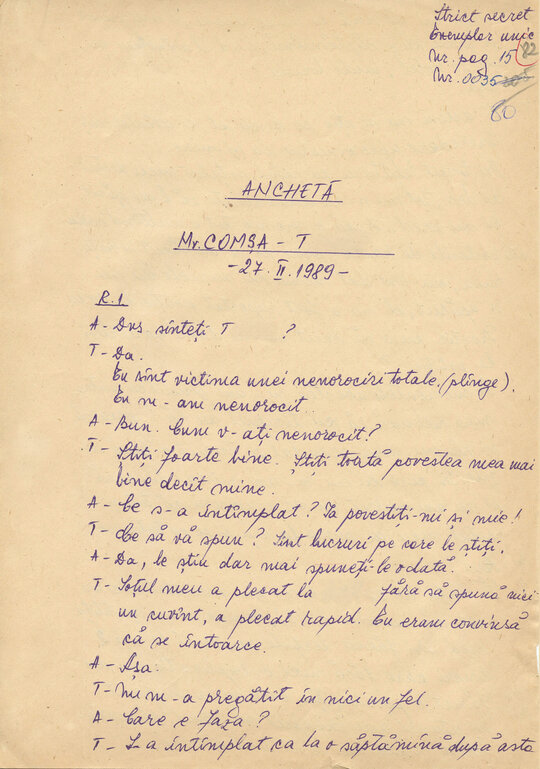 Strict secret
Exemplar unic
Nr. pag. 15 82
Nr. 0035
60
ANCHETĂ
Mr. COMȘA - T
- 27. II. 1989 -
R. 1.
A - Dvs. sînteți T ?
T - Da.
Eu sînt victima unei nenorociri totale. (plînge).
Eu m-am nenorocit.
A - Bun. Cum v-ați nenorocit?
T - Știți foarte bine. Știți toată povestea mea mai
bine decît mine.
A - Ce s-a întîmplat? Ia povestiți-mi și mie!
T - Ce să vă spun? Sînt lucruri pe care le știți.
A - Da, le știu dar mai spuneți-le odată.
T - Soțul meu a plecat la fără să spună nici
un cuvînt, a plecat rapid. Eu eram convinsă
că se întoarce.
A - Așa.
T - Nu m-a pregătit în nici un fel.
A - Care e faza?
T - S-a întîmplat ca la o săptămînă după asta